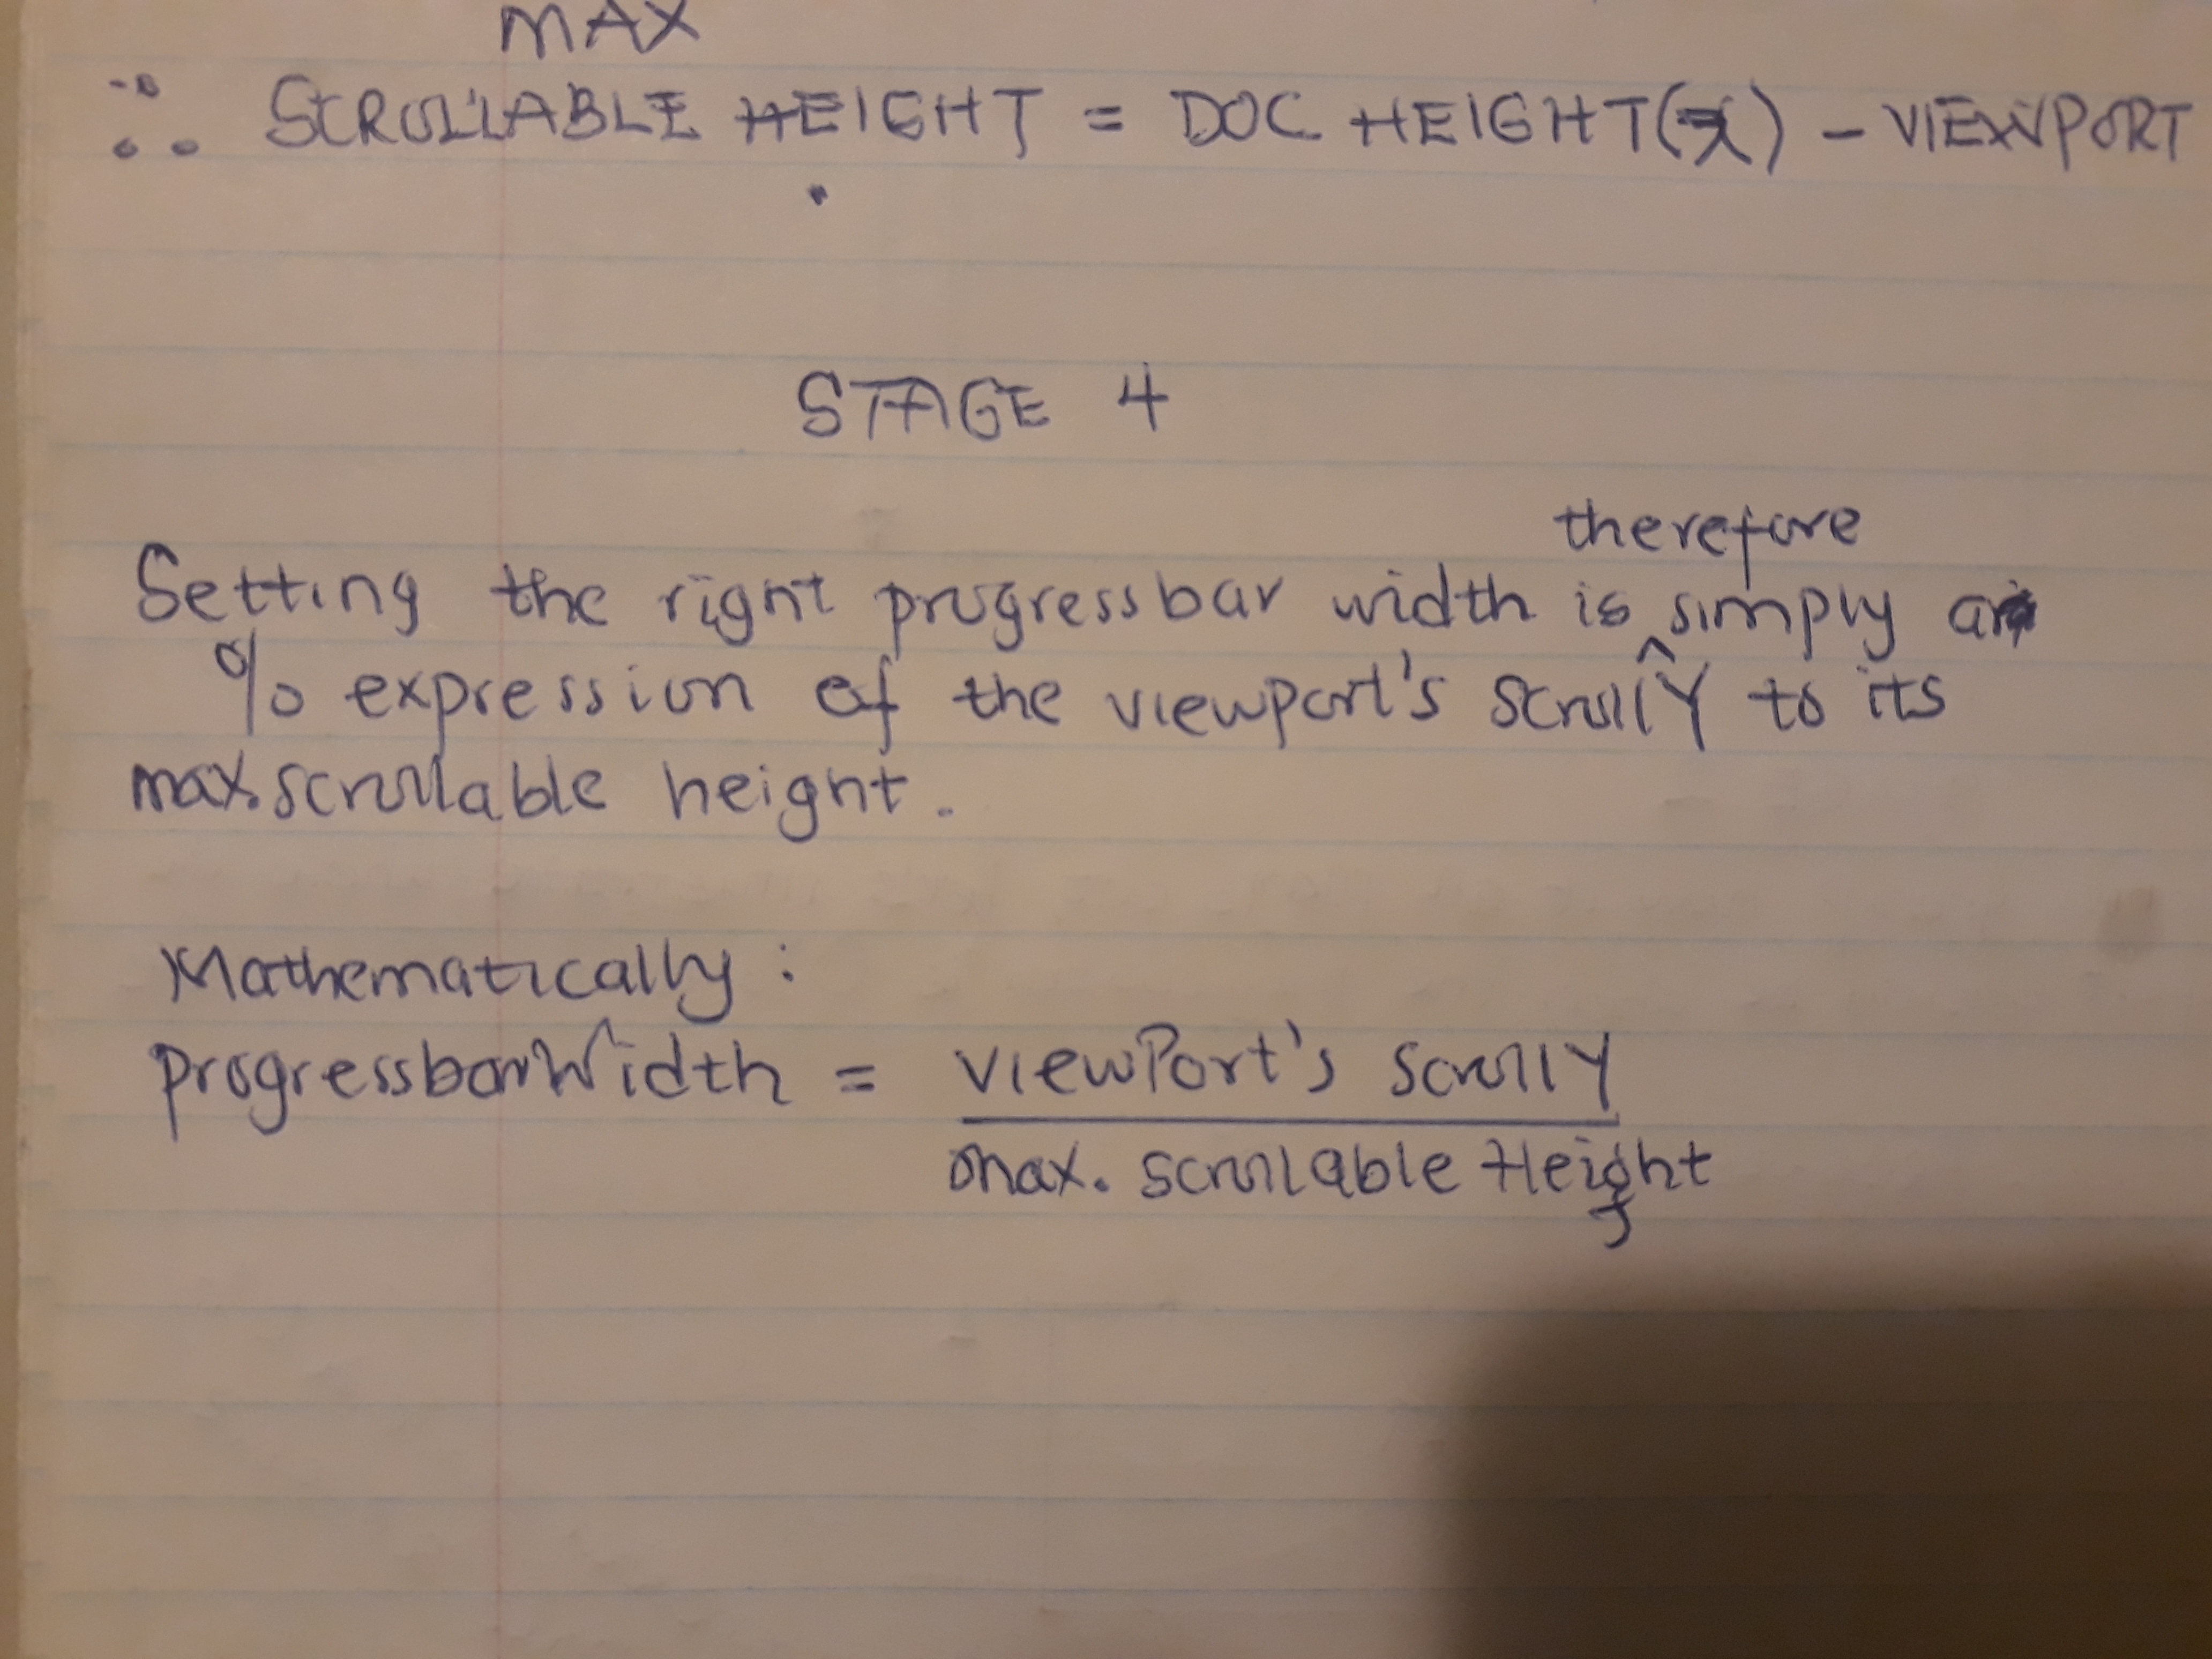 MAX
∴ SCROLLABLE HEIGHT = DOC HEIGHT(x) - VIEWPORT
STAGE 4
therefore
Setting the right progressbar width is ^ simply a
% expression of the viewport's scrollY to its
max. scrollable height.
Mathematically:
ProgressbarWidth = viewPort's scrollY
max. scrollable Height